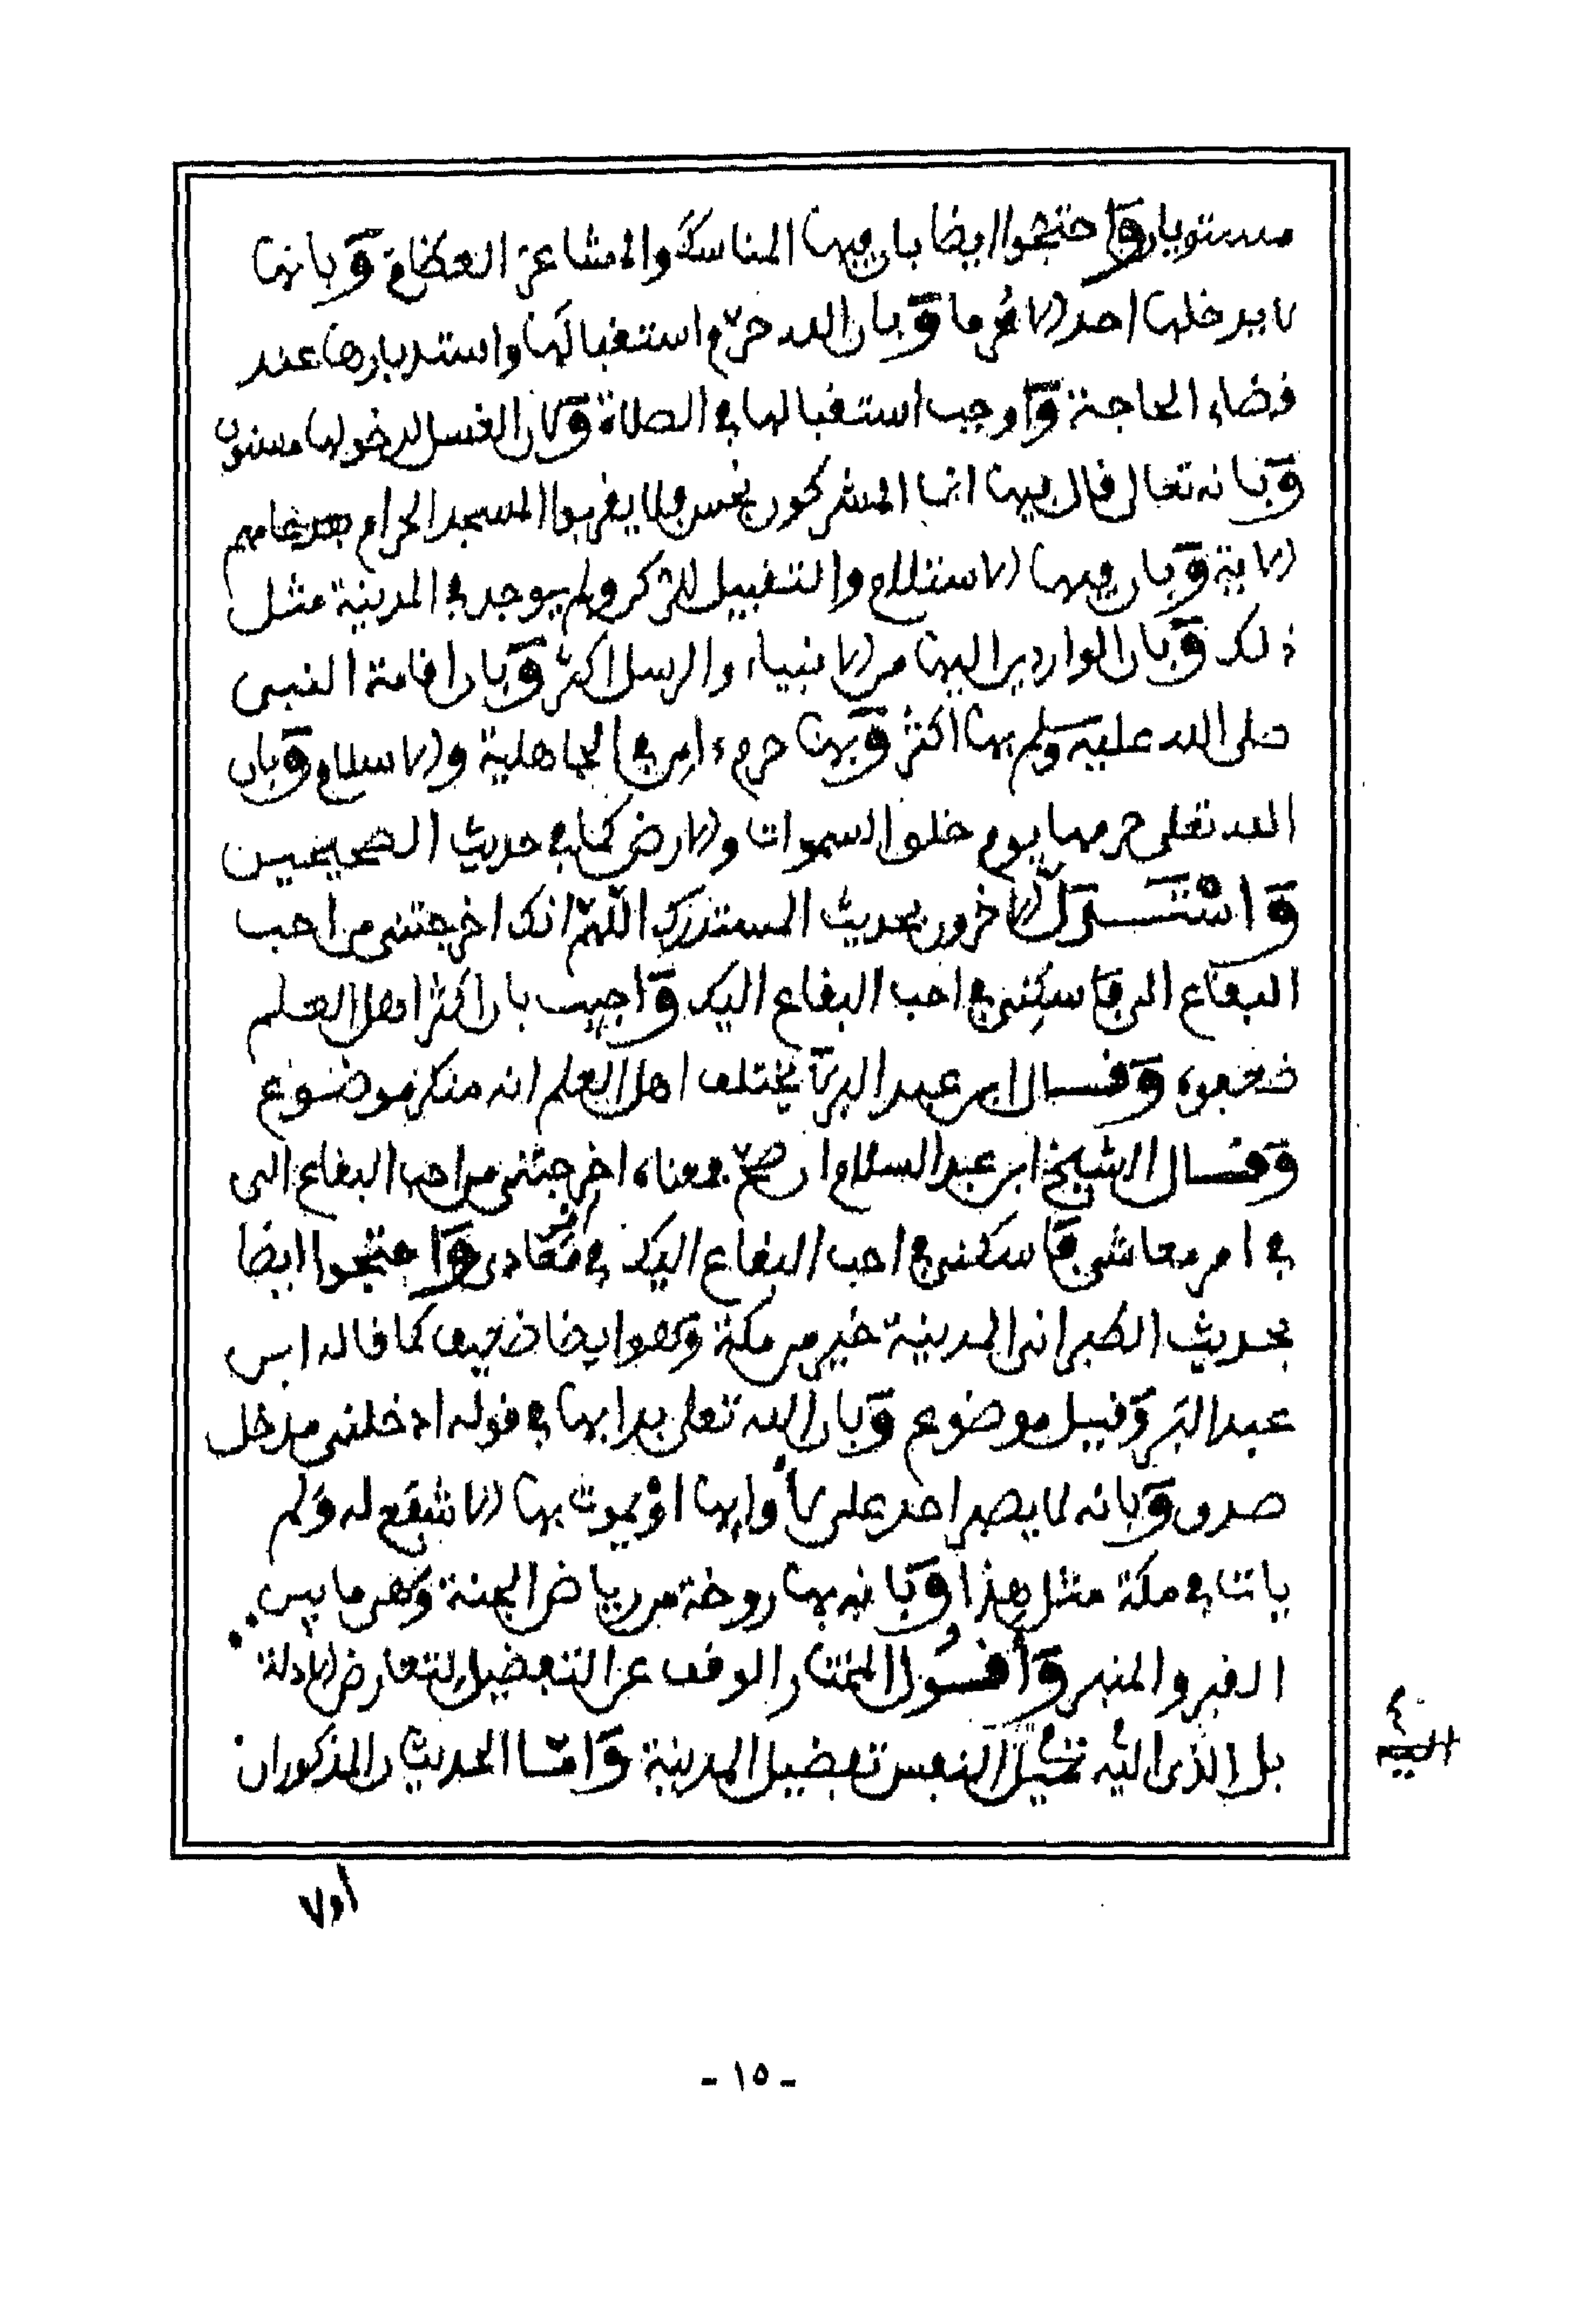 مستويان واحتجوا ايضا بان فيها المناسك والمشاعر العظام وبانها
لا يدخلها احد الا محرما وبان الله حرم استقبالها واستدبارها عند
قضاء الحاجة واوجب استقبالها في الصلاة وكان الغسل لدخولها مسنون
وبانه تعالى قال فيها انما المشركون نجس فلا يقربوا المسجد الحرام بعد عامهم
الاية وبان فيها الاستلام والتقبيل للركن ولم يوجد في المدينة مثل
ذلك وبان الواردين اليها من الانبياء والرسل اكثر وبان اقامة النبي
صلى الله عليه وسلم بها اكثر وبها حرم ءامن في الجاهلية والاسلام وبان
الله تعلى حرمها يوم خلق السموات والارض كما في حديث الصحيحين
واستدل الاخرون بحديث المستدرك اللهم انك اخرجتني من احب
البقاع الي فاسكني في احب البقاع اليك واجيب بان اكثر اهل العلم
ضعفوه وقال ابن عبد البر لا يختلف اهل العلم انه منكر موضوع
وقال الشيخ ابن عبد السلام ان صح فمعناه اخرجتني من احب البقاع الي
في امر معاشي فاسكني في احب البقاع اليك في معادي واحتجوا ايضا
بحديث الطبراني المدينة خير من مكة وهو ايضا ضعيف كما قاله ابن
عبد البر وقيل موضوع وبان الله تعلى بدا بها في قوله ادخلني مدخل
صدق وبانه لا يصبر احد على لأوايها او يموت بها الا شفع له ولم
يات في مكة مثل هذا وبانه بها روضة من رياض الجنة وهي ما بين
القبر والمنبر وأقول المختار الوقف عن التفضيل لتعارض الادلة
بل الذي اليه تميل النفس تفضيل المدينة واما الحديثان المذكوران
اولا
- ١٥ -